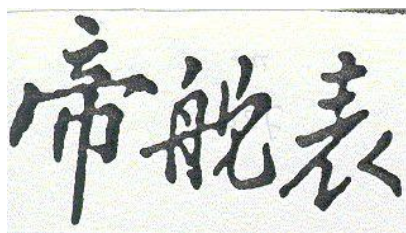 帝舵表